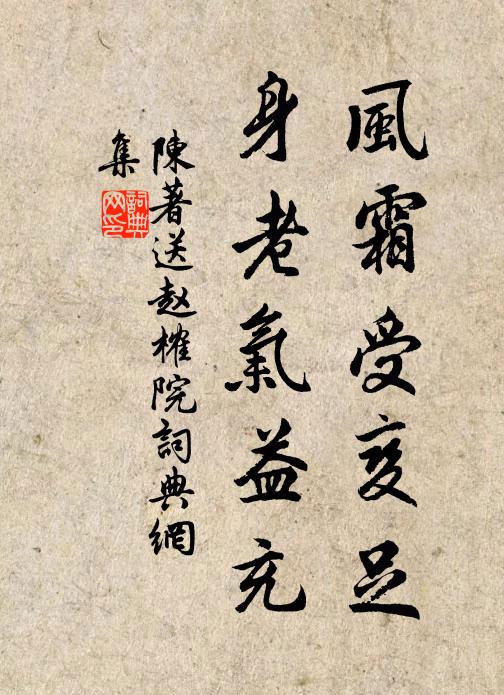 風霜受変足
身老氣益充
陳著送赵榷院詞典網
集
詞典
网印